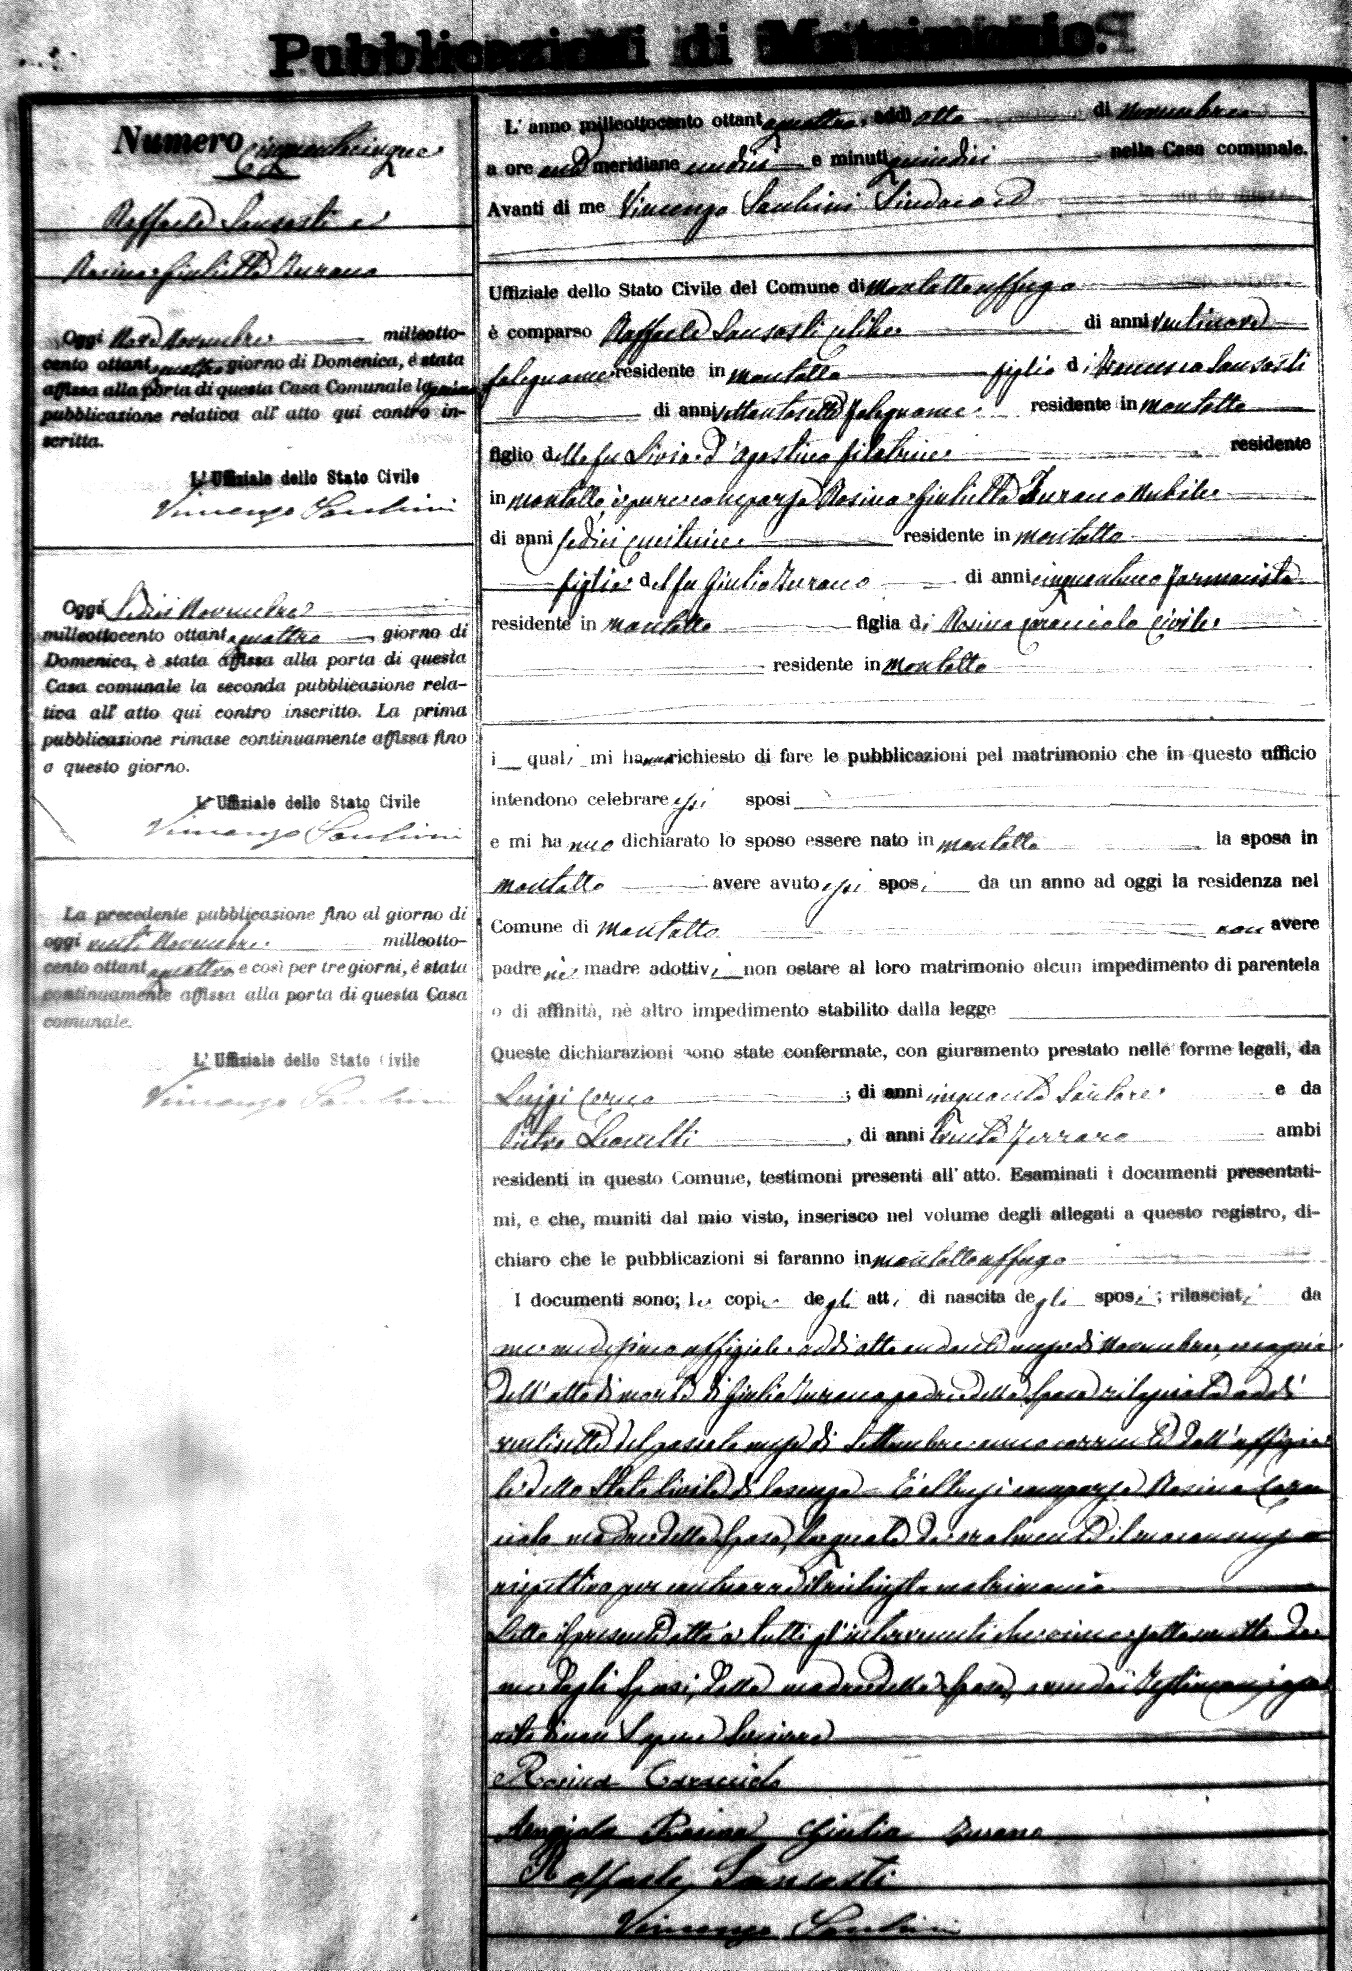 Pubblicazioni di Matrimonio.
Numero Cinquantacinque
Raffaele Sansosti e
Rosina Giulietta Zurano
Oggi Nove Novembre milleotto-
cento ottantaquattro giorno di Domenica, è stata
affissa alla porta di questa Casa Comunale la prima
pubblicazione relativa all' atto qui contro in-
scritta.
L'Uffiziale dello Stato Civile
Vincenzo
Oggi Sedici Novembre
milleottocento ottantaquattro giorno di
Domenica, è stata affissa alla porta di questa
Casa comunale la seconda pubblicazione rela-
tiva all' atto qui contro inscritto. La prima
pubblicazione rimase continuamente affissa fino
a questo giorno.
L'Uffiziale dello Stato Civile
Vincenzo
La precedente pubblicazione fino al giorno di
oggi venti Novembre milleotto-
cento ottantaquattro e così per tre giorni, è stata
continuamente affissa alla porta di questa Casa
comunale.
L'Uffiziale dello Stato Civile
Vincenzo
L' anno milleottocento ottantaquattro, addì otto di Novembre
a ore anti meridiane undici e minuti quindici nella Casa comunale.
Avanti di me Vincenzo Sindaco ed
Uffiziale dello Stato Civile del Comune di Montalto uffugo
è comparso Raffaele Sansosti celibe di anni ventinove
falegname residente in Montalto figlio di Francesco Sansosti
di anni settantasette falegname residente in Montalto
figlio della fu Livia d'Agostino filatrice residente
in Montalto è pure comparsa Rosina Giulietta Zurano Nubile
di anni sedici cucitrice residente in Montalto
figlia del fu Giulio Zurano di anni cinquantuno Farmacista
residente in Montalto figlia di Rosina Caracciolo Civile
residente in Montalto
i quali mi hanno richiesto di fare le pubblicazioni pel matrimonio che in questo ufficio
intendono celebrare essi sposi
e mi hanno dichiarato lo sposo essere nato in Montalto la sposa in
Montalto avere avuto essi sposi da un anno ad oggi la residenza nel
Comune di Montalto non avere
padre nè madre adottivi non ostare al loro matrimonio alcun impedimento di parentela
o di affinità, nè altro impedimento stabilito dalla legge
Queste dichiarazioni sono state confermate, con giuramento prestato nelle forme legali, da
Luigi ; di anni cinquanta Sartore e da
Pietro , di anni trenta Ferraro ambi
residenti in questo Comune, testimoni presenti all' atto. Esaminati i documenti presentati-
mi, e che, muniti dal mio visto, inserisco nel volume degli allegati a questo registro, di-
chiaro che le pubblicazioni si faranno in Montalto uffugo
I documenti sono; le copie degli atti di nascita degli sposi; rilasciati da
me medesimo uffiziale addì otto andante mese di Novembre, e copia
dell'atto di morte di Giulio Zurano padre della sposa rilasciata addì
ventisette del passato mese di Settembre anno corrente dall'uffizia-
le dello Stato Civile di Cosenza È altresì comparsa Rosina Carac-
ciolo madre della sposa, la quale dà oralmente il suo consenso
rispettivo per contrarre il richiesto matrimonio
Letto il presente atto a tutti gl'intervenuti da
me dagli sposi, dalla madre della sposa, e non dai Testimoni
di non sapere
Rosina Caracciolo
Angiola Rosina Giulia Zurano
Raffaele Sansosti
Vincenzo